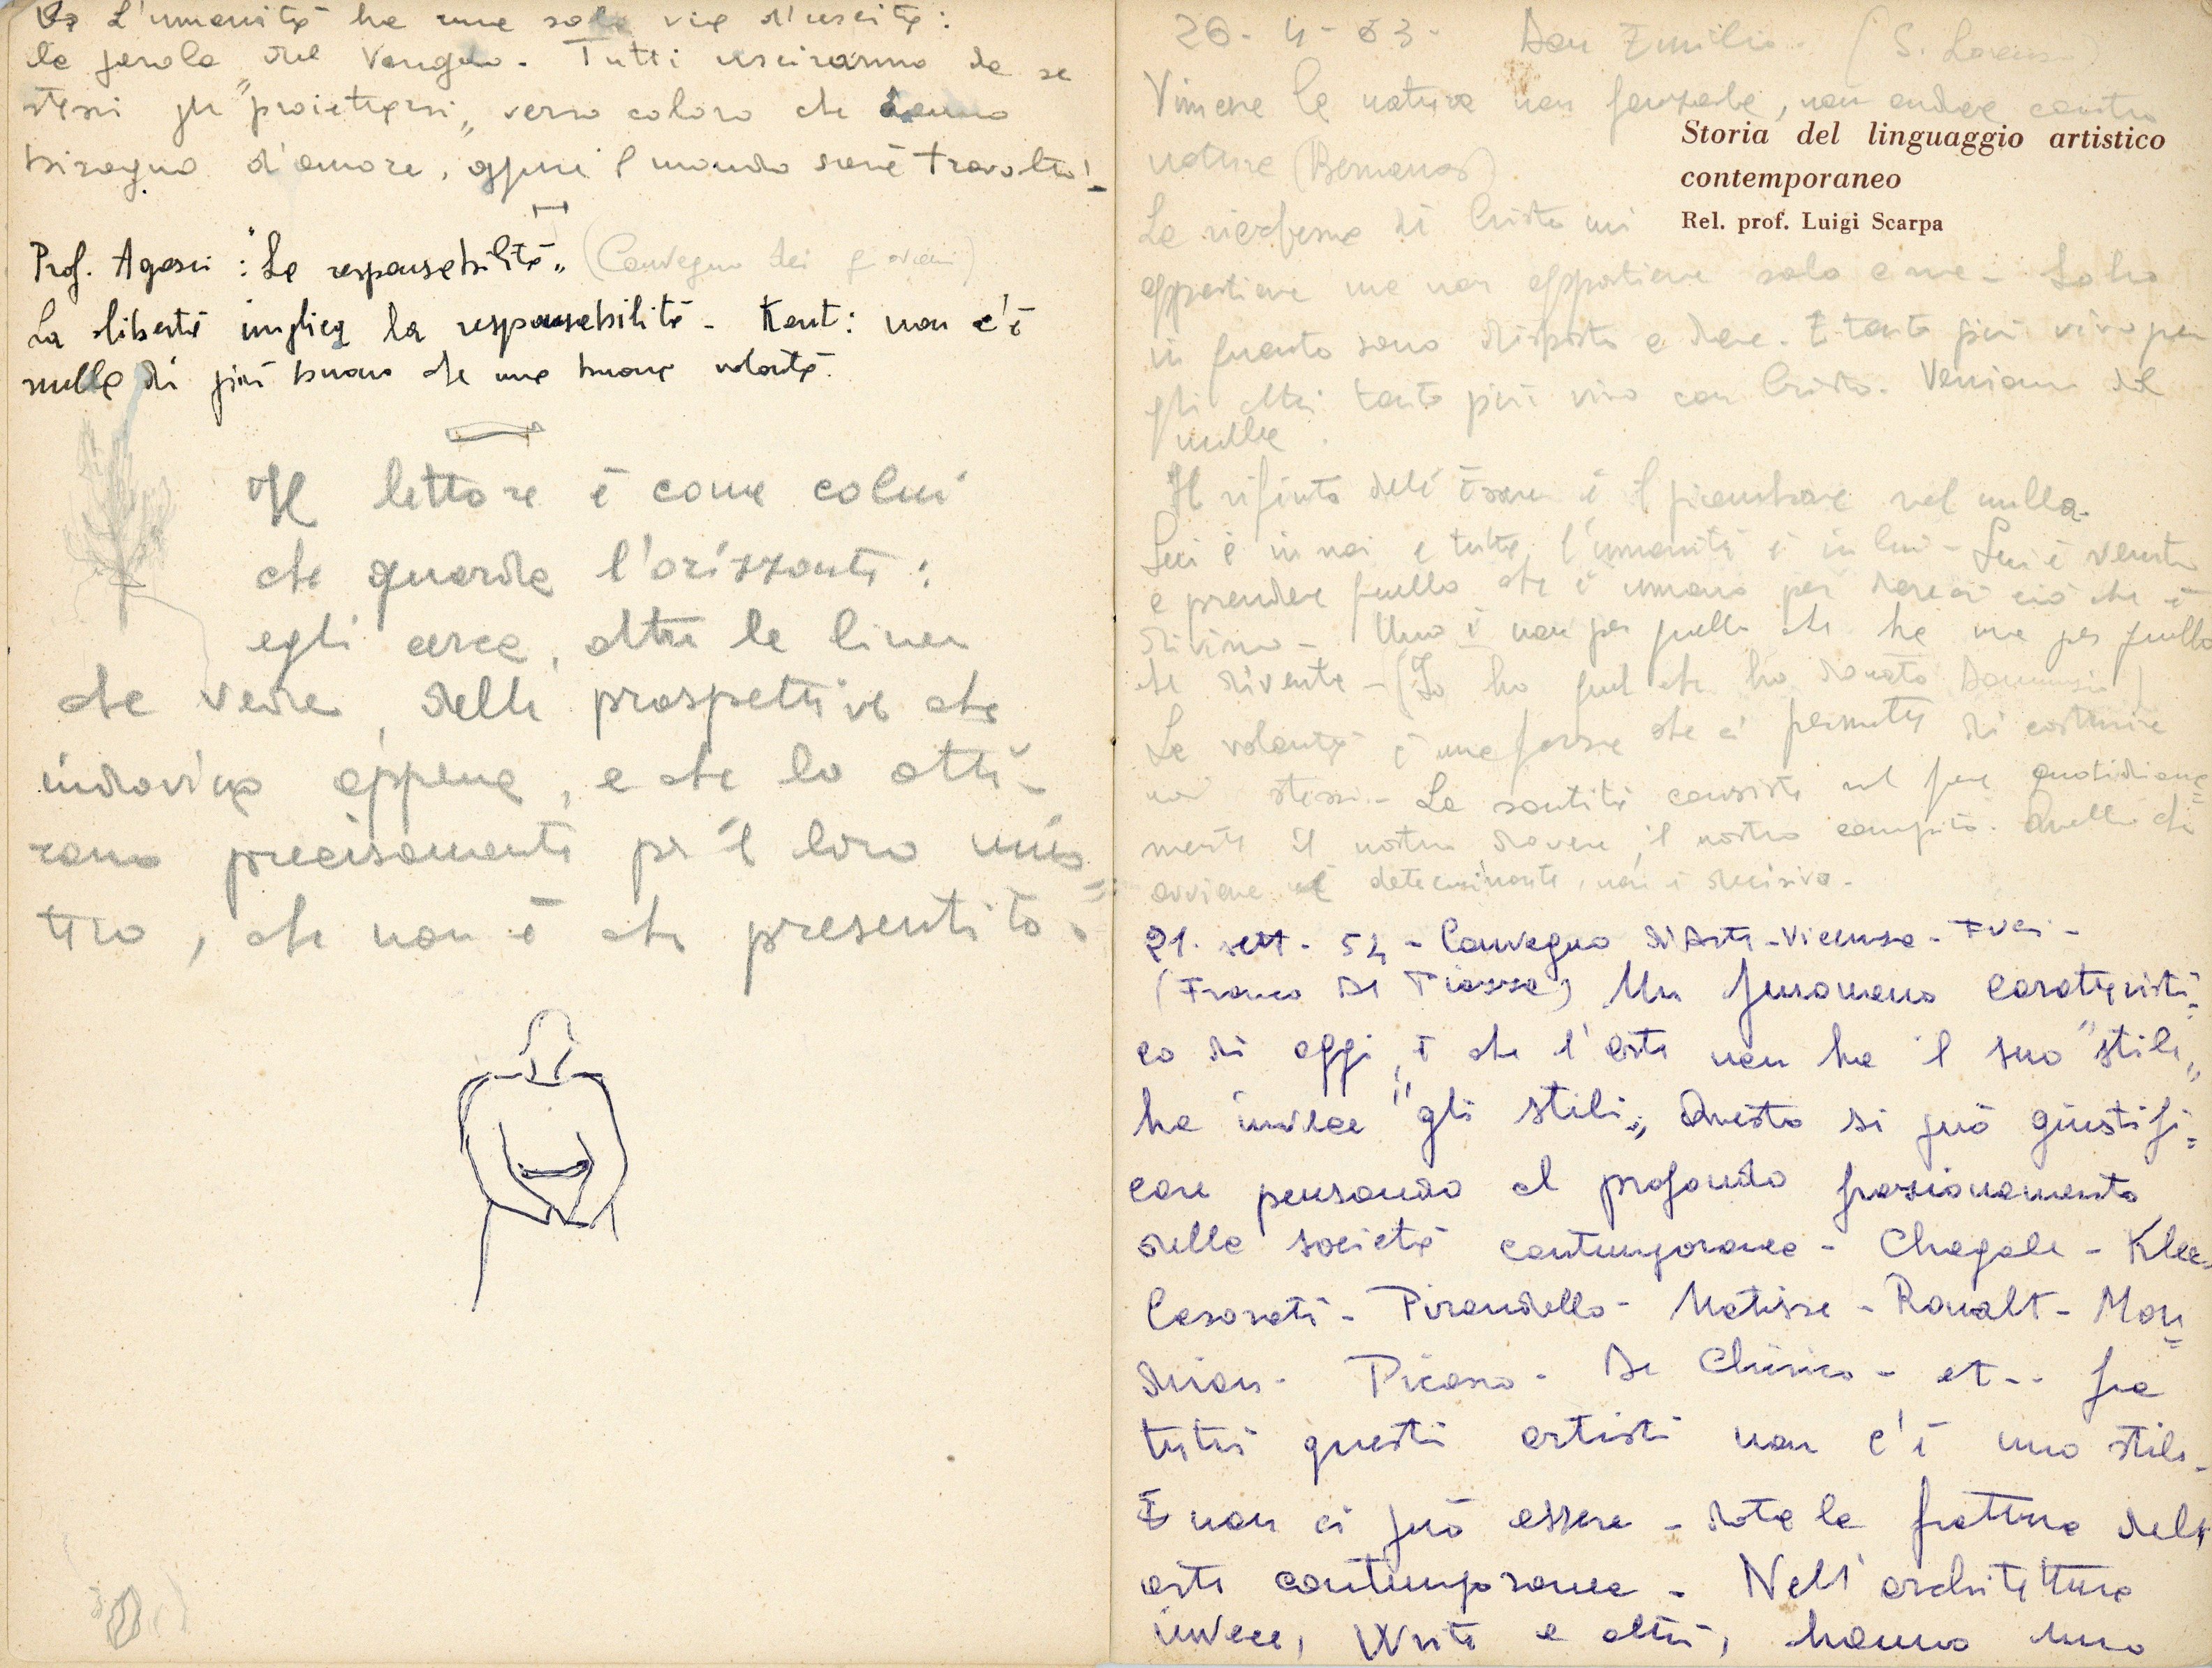 L'umanità ha una sola via d'uscita:
la parola del Vangelo. Tutti usciranno da se
stessi per "proiettarsi" verso coloro che hanno
bisogno d'amore, oppure il mondo sarà travolto!
Prof. Agosci: "La responsabilità" (Convegno dei giovani)
La libertà implica la responsabilità - Kant: non c'è
nulla di più buono che una buona volontà.
Il lettore è come colui
che guarda l'orizzonte:
egli cerca, oltre la linea
che vede, delle prospettive che
indovina appena, e che lo atti-
rano precisamente per il loro mis=
tero, che non è che presentito.
26-4-63- Don Emilio. (S. Lorenzo)
Vincere la natura non forzarla, non andare contro
natura (Bernanos)
Storia del linguaggio artistico
contemporaneo
Rel. prof. Luigi Scarpa
La ricchezza di Cristo mi
appartiene ma non appartiene solo a me - La ho
in quanto sono disposto a dare. E tanto più vivo per
gli altri tanto più vivo con Cristo. Veniamo dal
nulla.
Il rifiuto dell'Essere è il piombare nel nulla.
Lui è in noi e tutta l'umanità è in lui - Lui è venuto
a prendere quello che è umano per darci ciò che è
divino - Uno è non per quello che ha ma per quello
che diventa - (Io ho quel che ho donato Dannunzio)
La volontà è una forza che ci permette di costruire
noi stessi. - La santità consiste nel fare quotidiana=
mente il nostro dovere, il nostro compito. Quello che
avviene è determinante, non è decisivo.
21. sett. 54 - Convegno d'Arte - Vicenza - Fuci -
(Franco De Piazza) Un fenomeno caratteristi=
co di oggi, è che l'arte non ha il suo "stile"
ha invece "gli stili". Questo si può giustifi=
care pensando al profondo frazionamento
della società contemporanea - Chagale - Klee -
Casorati - Pirandello - Matisse - Roualt - Mon=
drian - Picasso - De Chirico - et.. fra
tutti questi artisti non c'è uno stile -
E non ci può essere - data la frattura dell'
arte contemporanea - Nell'architettura
invece, Write e altri, hanno uno